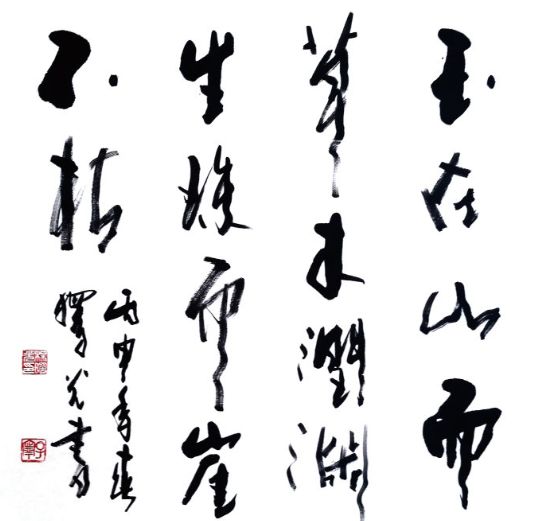 玉在山而
草木潤淵
生珠而崖
不枯
丙申年春
書